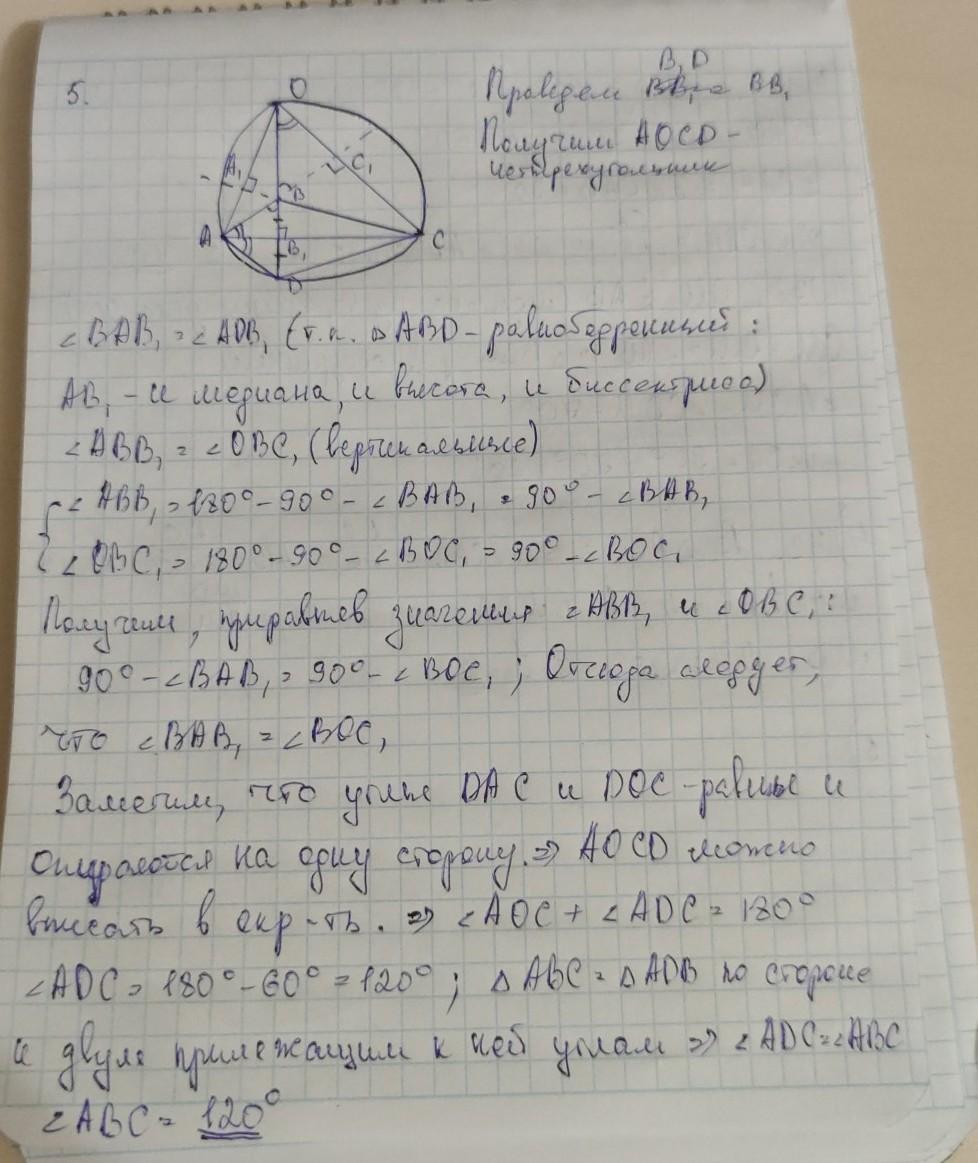 5.
O
A₁
C₁
B
A
B₁
C
D
Проведем B₁D = BB₁
Получим AOCD -
четырехугольник
∠BAB₁ = ∠ADB₁ (т.к. △ABD - равнобедренный :
AB₁ - и медиана, и высота, и биссектриса)
∠ABB₁ = ∠OBC₁ (вертикальные)
∠ABB₁ = 180° - 90° - ∠BAB₁ = 90° - ∠BAB₁
∠OBC₁ = 180° - 90° - ∠BOC₁ = 90° - ∠BOC₁
Получим, приравняв значения ∠ABB₁ и ∠OBC₁ :
90° - ∠BAB₁ = 90° - ∠BOC₁ ; Отсюда следует,
что ∠BAB₁ = ∠BOC₁
Заметим, что углы DAC и DOC - равны и
опираются на одну сторону. ⇒ AOCD можно
вписать в окр-ть. ⇒ ∠AOC + ∠ADC = 180°
∠ADC = 180° - 60° = 120° ; △ABC = △ADB по стороне
и двум прилежащим к ней углам ⇒ ∠ADC = ∠ABC
∠ABC = 120°